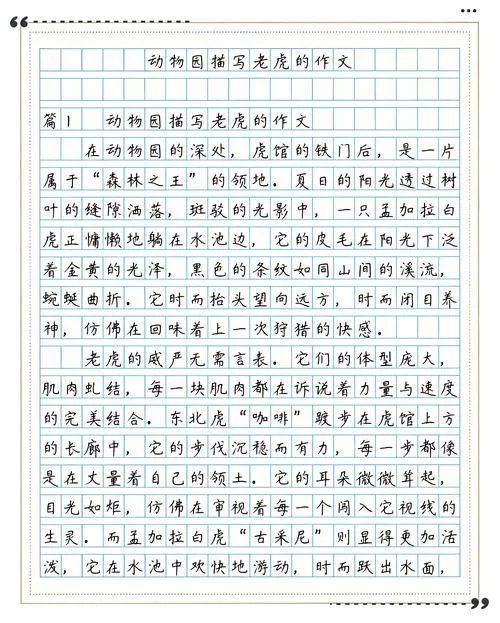 动物园描写老虎的作文
篇1 动物园描写老虎的作文
在动物园的深处，虎馆的铁门后，是一片
属于“森林之王”的领地。夏日的阳光透过树
叶的缝隙洒落，斑驳的光影中，一只孟加拉白
虎正慵懒地躺在水池边，它的皮毛在阳光下泛
着金黄的光泽，黑色的条纹如同山间的溪流，
蜿蜒曲折。它时而抬头望向远方，时而闭目养
神，仿佛在回味着上一次狩猎的快感。
老虎的威严无需言表。它们的体型庞大，
肌肉虬结，每一块肌肉都在诉说着力量与速度
的完美结合。东北虎“咖啡”踱步在虎馆上方
的长廊中，它的步伐沉稳而有力，每一步都像
是在丈量着自己的领土。它的耳朵微微耸起，
目光如炬，仿佛在审视着每一个闯入它视线的
生灵。而孟加拉白虎“古采尼”则显得更加活
泼，它在水池中欢快地游动，时而跃出水面，